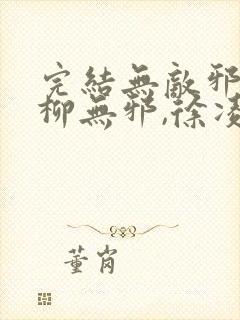 完結無敵邪
柳無邪,徐凌
董肖